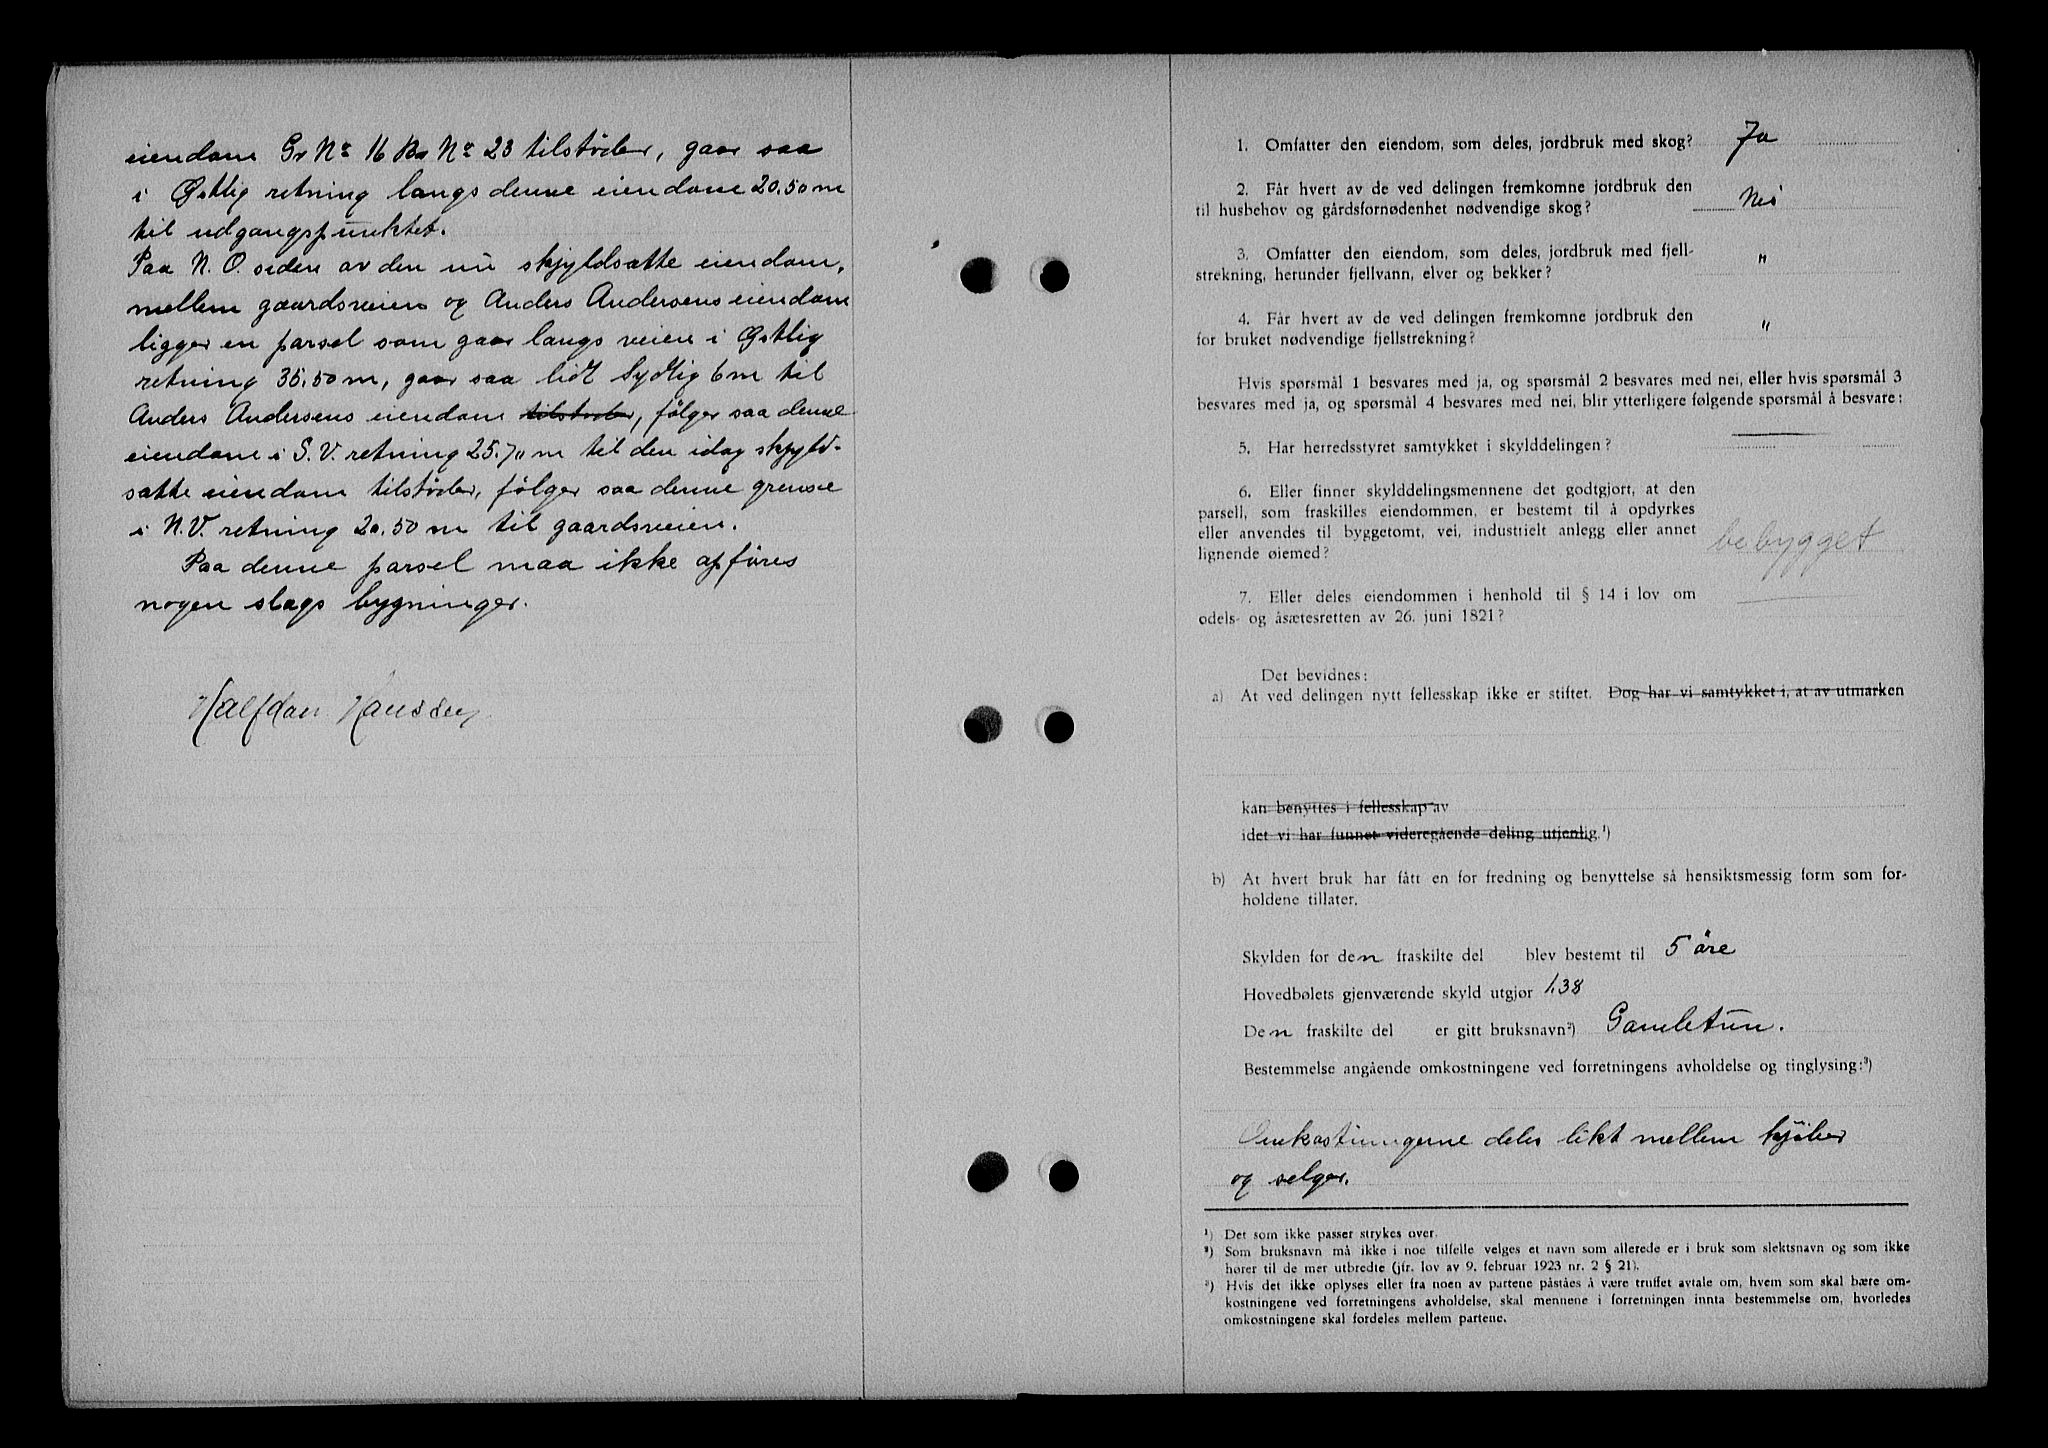 eiendom Gr Nr 16 Br Nr 23 tilstöder, gaar saa
i Østlig retning langs denne eiendom 20.50 m
til udgangspunktet.
Paa N. O. siden av den nu skjyldsatte eiendom,
mellem gaardsveien og Anders Andersens eiendom
ligger en parsel som gaar langs veien i Østlig
retning 35,50 m, gaar saa lidt Sydlig 6 m til
Anders Andersens eiendom tilstöder, følger saa denne
eiendom i S. V. retning 25.70 m til den idag skjyld-
satte eiendom tilstöder, følger saa denne grense
i N.V. retning 20.50 m til gaardsveien.
Paa denne parsel maa ikke opføres
nogen slags bygninger.
Halfdan Hanssen
1. Omfatter den eiendom, som deles, jordbruk med skog? Ja
2. Får hvert av de ved delingen fremkomne jordbruk den
til husbehov og gårdsfornødenhet nødvendige skog? Nei
3. Omfatter den eiendom, som deles, jordbruk med fjell-
strekning, herunder fjellvann, elver og bekker? "
4. Får hvert av de ved delingen fremkomne jordbruk den
for bruket nødvendige fjellstrekning? "
Hvis spørsmål 1 besvares med ja, og spørsmål 2 besvares med nei, eller hvis spørsmål 3
besvares med ja, og spørsmål 4 besvares med nei, blir ytterligere følgende spørsmål å besvare:
5. Har herredsstyret samtykket i skylddelingen?
6. Eller finner skylddelingsmennene det godtgjort, at den
parsell, som fraskilles eiendommen, er bestemt til å opdyrkes
eller anvendes til byggetomt, vei, industrielt anlegg eller annet
lignende øiemed? bebygget
7. Eller deles eiendommen i henhold til § 14 i lov om
odels- og åsætesretten av 26. juni 1821?
Det bevidnes:
a) At ved delingen nytt fellesskap ikke er stiftet. Dog har vi samtykket i, at av utmarken
kan benyttes i fellesskap av
idet vi har funnet videregående deling utjenlig.¹)
b) At hvert bruk har fått en for fredning og benyttelse så hensiktsmessig form som for-
holdene tillater.
Skylden for den fraskilte del blev bestemt til 5 öre
Hovedbølets gjenværende skyld utgjør 1.38
Den fraskilte del er gitt bruksnavn²) Gamletun.
Bestemmelse angående omkostningene ved forretningens avholdelse og tinglysing:³)
Omkostningerne deles likt mellem kjöber
og selger.
¹) Det som ikke passer strykes over.
²) Som bruksnavn må ikke i noe tilfelle velges et navn som allerede er i bruk som slektsnavn og som ikke
hører til de mer utbredte (jfr. lov av 9. februar 1923 nr. 2 § 21).
³) Hvis det ikke oplyses eller fra noen av partene påståes å være truffet avtale om, hvem som skal bære om-
kostningene ved forretningens avholdelse, skal mennene i forretningen innta bestemmelse om, hvorledes
omkostningene skal fordeles mellem partene.